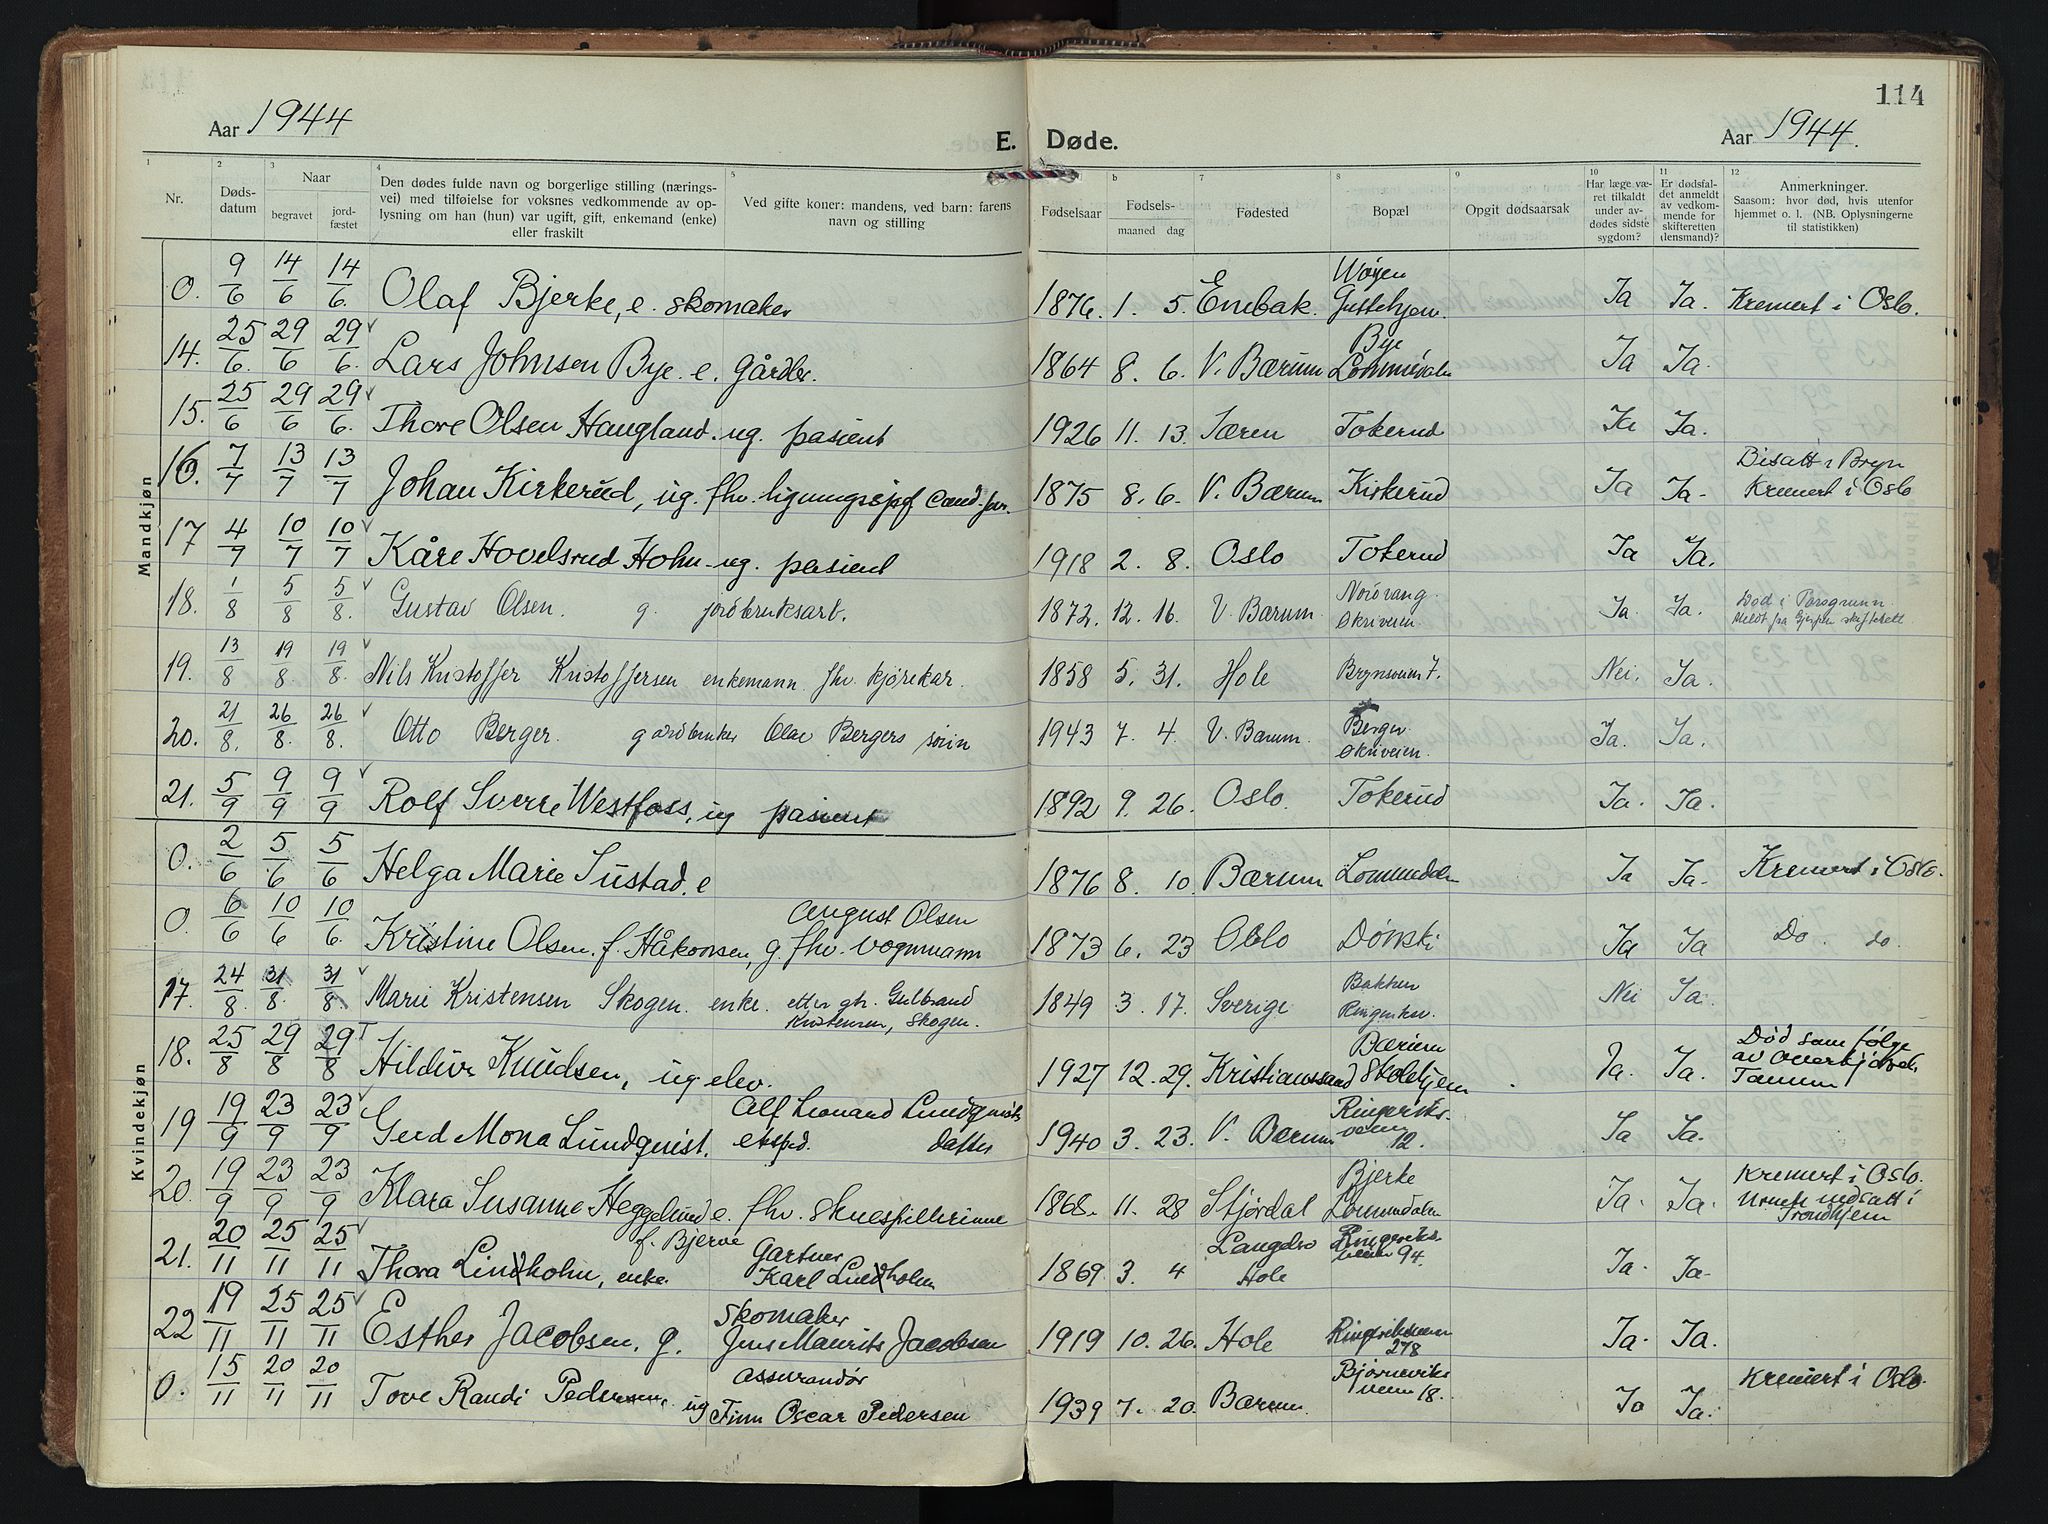 114
Aar 1944
E. Døde.
Aar 1944.
1 2 3 4 5 6 7 8 9 10 11 12
Nr. | Døds-datum | Naar begravet | jord-fæstet | Den dødes fulde navn og borgerlige stilling (nærings-vei) med tilføielse for voksnes vedkommende av op-lysning om han (hun) var ugift, gift, enkemand (enke) eller fraskilt | Ved gifte koner: mandens, ved barn: farens navn og stilling | Fødselsaar | Fødsels-maaned dag | Fødested | Bopæl | Opgit dødsaarsak | Har læge væ-ret tilkaldt under av-dødes sidste sygdom? | Er dødsfal-det anmeldt av vedkom-mende for skifteretten (lensmand)? | Anmerkninger. Saasom: hvor død, hvis utenfor hjemmet o. l. (NB. Oplysningerne til statistikken)
Mandkjøn
0. 9/6 14/6 14/6. Olaf Bjerke, e. skomaker 1876. 1. 5. Enebak. Wøyen Guttehjem. Ja Ja. Kremert i Oslo.
14. 25/6. 29/6 29/6. Lars Johnsen Bye. e. gårdbr. 1864 8. 6. V. Bærum Bye Lommedalen Ja Ja.
15. 25/6 29/6 29/6. Thore Olsen Haugland. ug. pasient 1926 11. 13. Jæren Tokerud Ja Ja.
16. 7/7 13/7 13/7 Johan Kirkerud, ug. fhv. ligningssjef cand. jur. 1875 8. 6. V. Bærum Kirkerud Ja Ja. Bisatt i Bryn Kremert i Oslo
17 4/7 10/7 10/7 Kåre Hovelsrud Hohn ug. pasient 1918 2. 8. Oslo Tokerud Ja Ja.
18. 1/8 5/8 5/8. Gustav Olsen. g. jordbruksarb. 1872. 12. 16. V. Bærum. Nordvang. Skriveien. Ja Ja. Død i Porsgrunn. Meldt fra Gjerpen skifterett
19. 13/8 19/8 19/8. Nils Kristoffer Kristoffersen enkemann. fhv. kjørekar. 1858 5. 31. Hole Brynsveien 7. Nei. Ja.
20. 21/8. 26/8. 26/8. Otto Berger. gårdbruker Olav Bergers sønn 1943 7. 4. V. Bærum. Berger Skriveien. Ja. Ja.
21. 5/9 9/9 9/9 Rolf Sverre Westfoss, ug pasient 1892 9. 26. Oslo. Tokerud Ja. Ja.
Kvindekjøn
0. 2/6 5/6 5/6 Helga Marie Sustad. e 1876 8. 10. Bærum Lommedalen Ja Ja. Kremert i Oslo.
0. 6/6 10/6 10/6. Kristine Olsen. f. Håkonsen, g. August Olsen fhv. vognmann 1873 6. 23 Oslo Dønski Ja Ja Do. do.
17. 24/8. 31/8. 31/8. Marie Kristensen Skogen. enke. etter gb. Gulbrand Kristensen, Skogen. 1849 3. 17. Sverige Bakken Ringeriksv. Nei Ja.
18. 25/8 29/8 29/8 Hildur Knudsen, ug elev. 1927 12. 29. Kristianssand Bærum Skolehjem Ja. Ja. Død som følge av overkjørsel. Tanum
19 19/9 23/9 23/9 Gerd Mona Lundquist. Alf Leonard Lundquists eksped. datter 1940 3. 23. V. Bærum Ringeriks-veien 12. Ja Ja.
20. 19/9 23/9 23/9 Klara Susanne Heggelund e. fhv. skuespillerinne f. Bjerve 1868. 11. 28 Stjørdal Bjerke Lommedalen Ja. Ja. Kremert i Oslo. Urnen nedsatt i Trondhjem
21. 20/11 25/11 25/11 Thora Lindholm, enke Gartner Karl Lindholm 1869. 3. 4 Hole Ringeriks-veien 94. Ja. Ja.
22 19/11 25/11 25/11 Esther Jacobsen. g. Skomaker Jens Maurits Jacobsen 1919 10. 26. Hole Ringeriksveien 278 Ja. Ja.
0. 15/11 20/11 20/11 Tove Randi Pedersen, ug Assurandør Finn Oscar Pedersen 1939 7. 20. Bærum. Bjørneviks veien 18. Ja Ja. Kremert i Oslo.